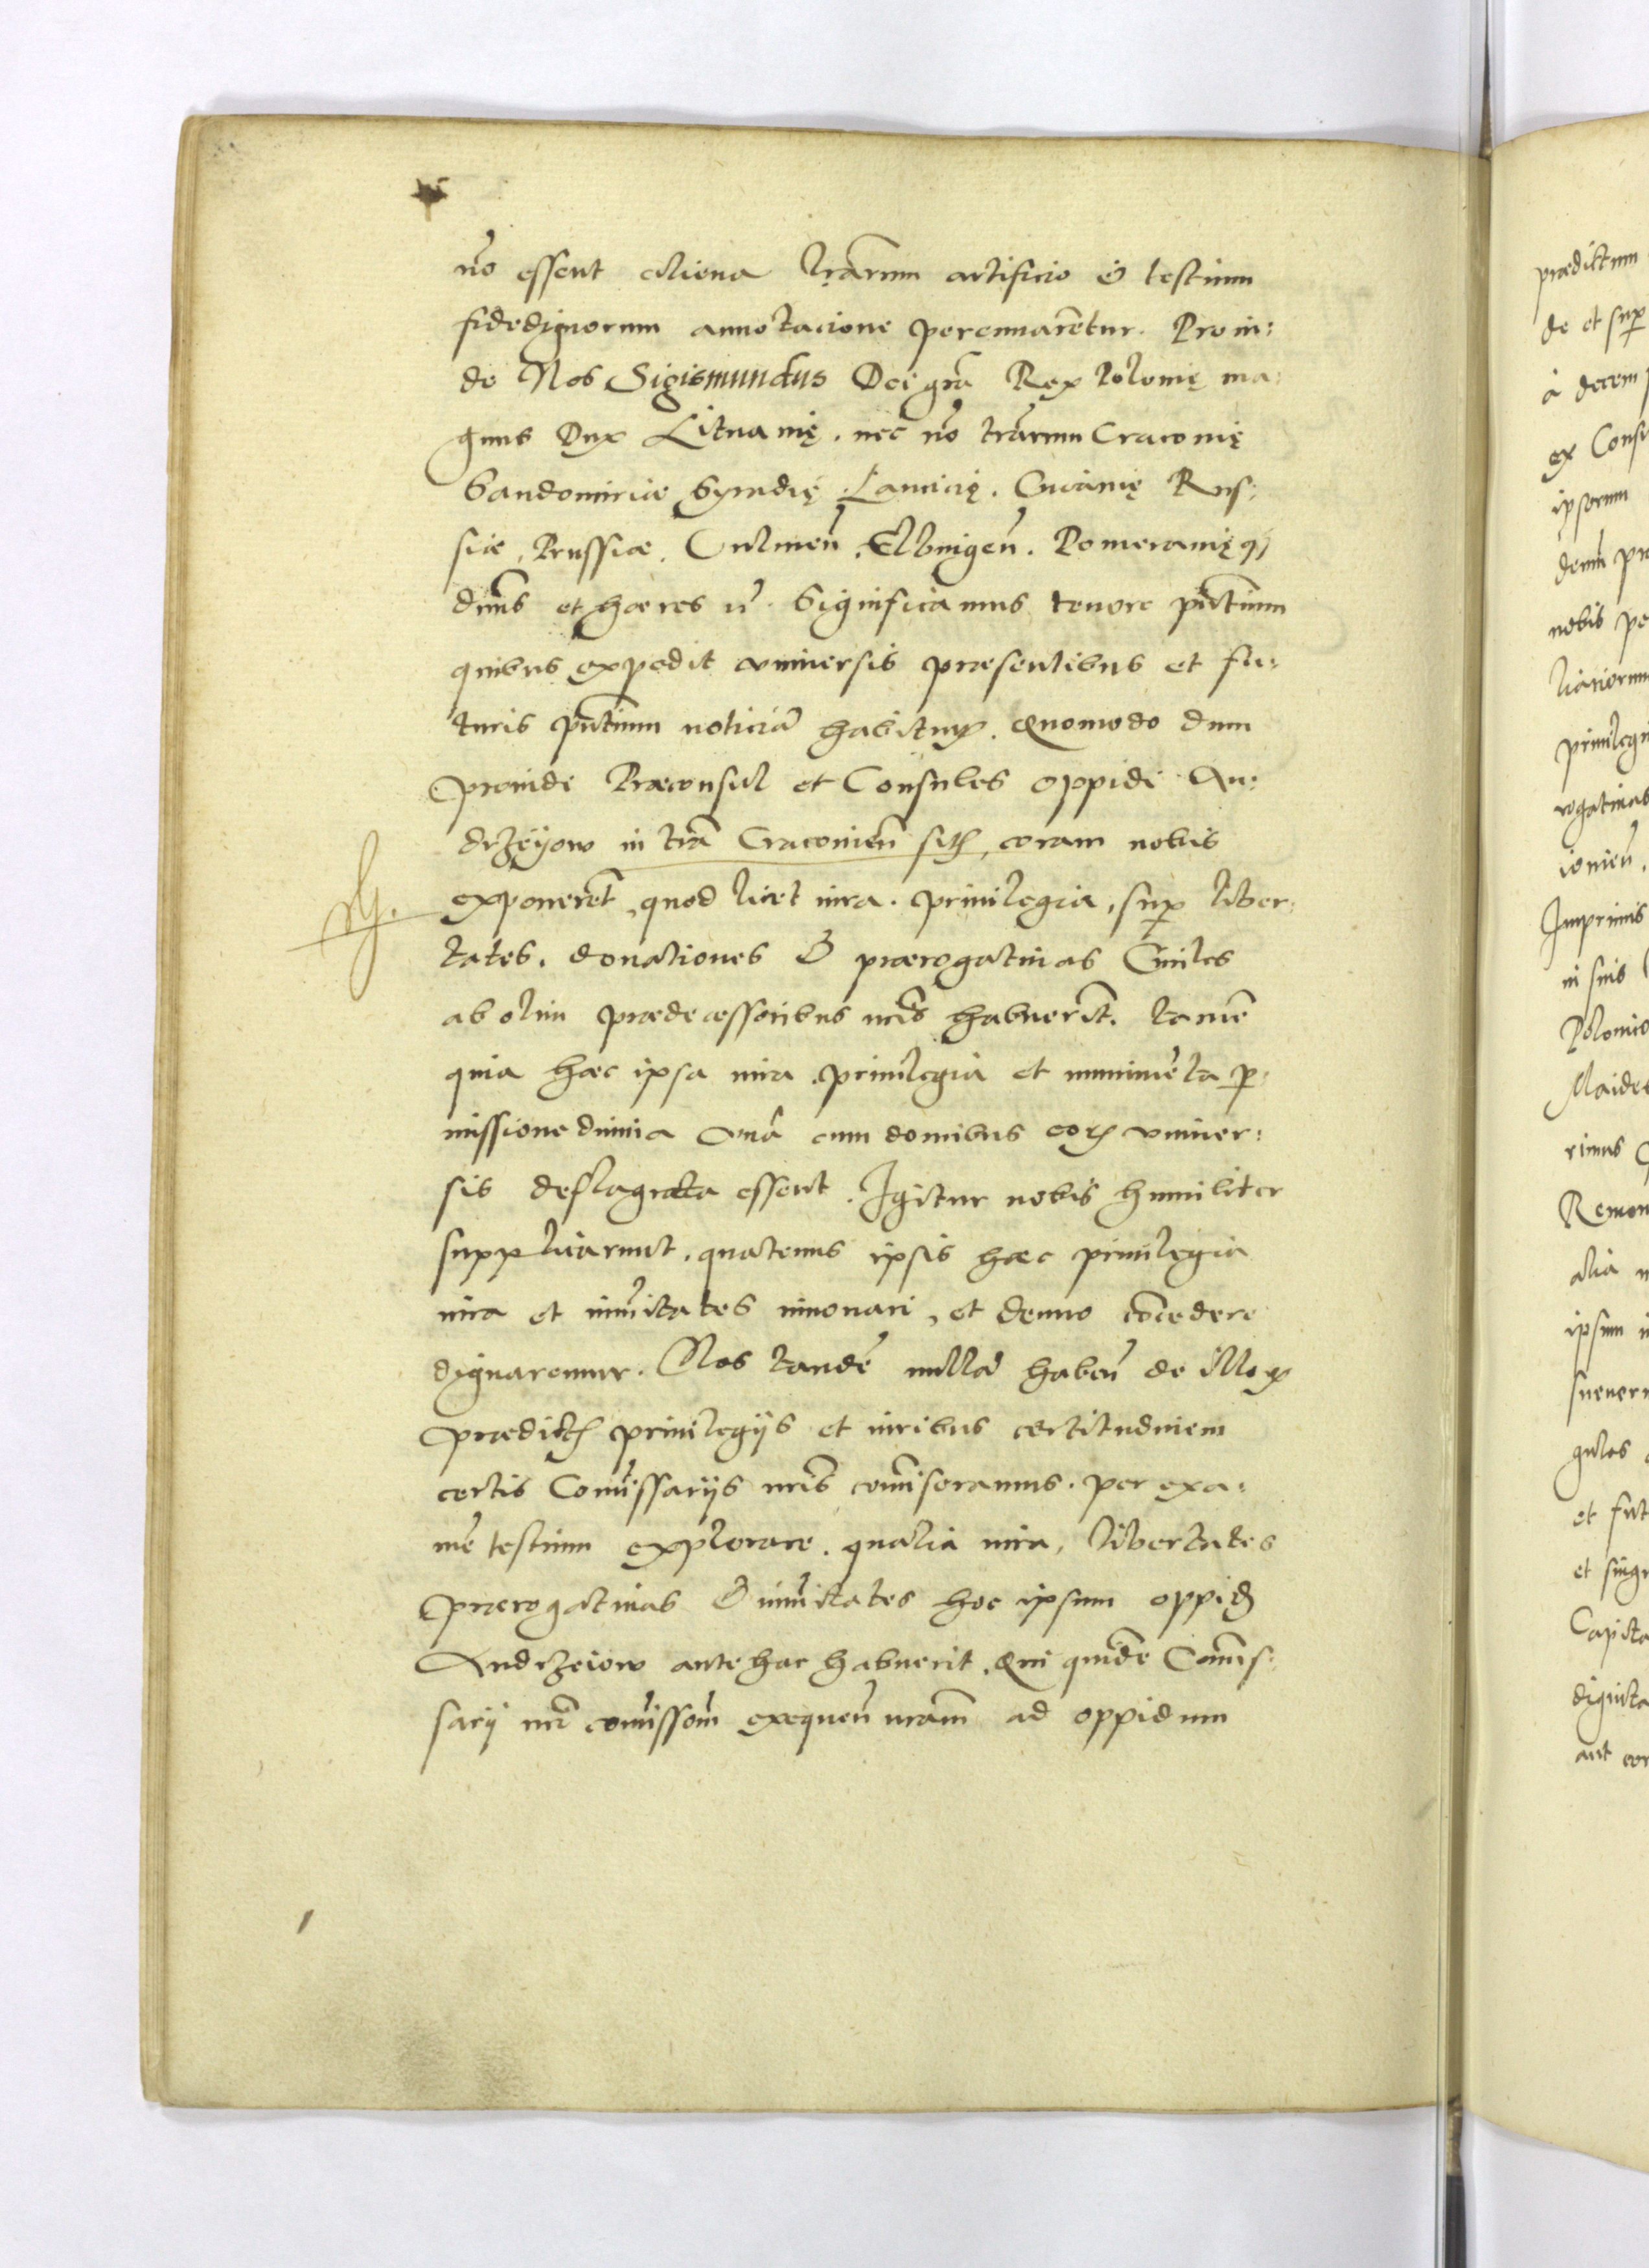 nō essent aliena lrārum artificio & testium
fidedignorum annotacione perennarētur. Proin:
de Nos Sigismundus Dei grā Rex Polonię ma:
gnus Dux Lituanię. nec nō trārum Cracouię
Sandomirie Syradię. Lancicię. Cuiauię Rus:
siæ, Prussiæ. Culmeñ. Elbingeñ. Pomeranięq;
dnūs et hæres
Significamus tenore pñtium
quibus expedit vniuersis præsentibus et fu:
turis pñtium noticiā habitur. Quomodo dum
prouidi Præconsul et Consules oppidi An:
drzeÿow in trā Cracouieñ sit, coram nobis
exponerēt, quod licet iura. priuilegia, sup liber:
tates. donationes & prærogatiuas Ciuiles
ab olim prædecessoribus nrīs habuerīt. tamē
quia hæc ipsa iura. priuilegia et munimēta p:
missione diuina vnā cum domibus eor vniuer:
sis deflagrata essent. Igitur nobis humiliter
supplicarunt. quatenus ipsis hæc priuilegia
iura et imūitates innouari, et denuo cōcedere
dignaremur. Nos tandē nullā habeñ de illor
prædict priuilegijs et iuribus certitudinem
certis Comissarijs nrīs comīseramus. per exa:
mē testium explorare. qualia iura, libertates
prærogatiuas & imūitates hoc ipsum oppid
Andrzeiow antehac habuerit. Qui quidē Comīs:
sarij nrī comissom̄ exequeñ nrām ad oppidum
prædictum
de et sup
à decem
ex Consu
ipsorum
nobis pe
priuilegi
rogatiuas
Imprimis
in suis
Polonico
rimus
alia
ipsum
gulos
et fut
et singu
Capita
dignita
aut cor